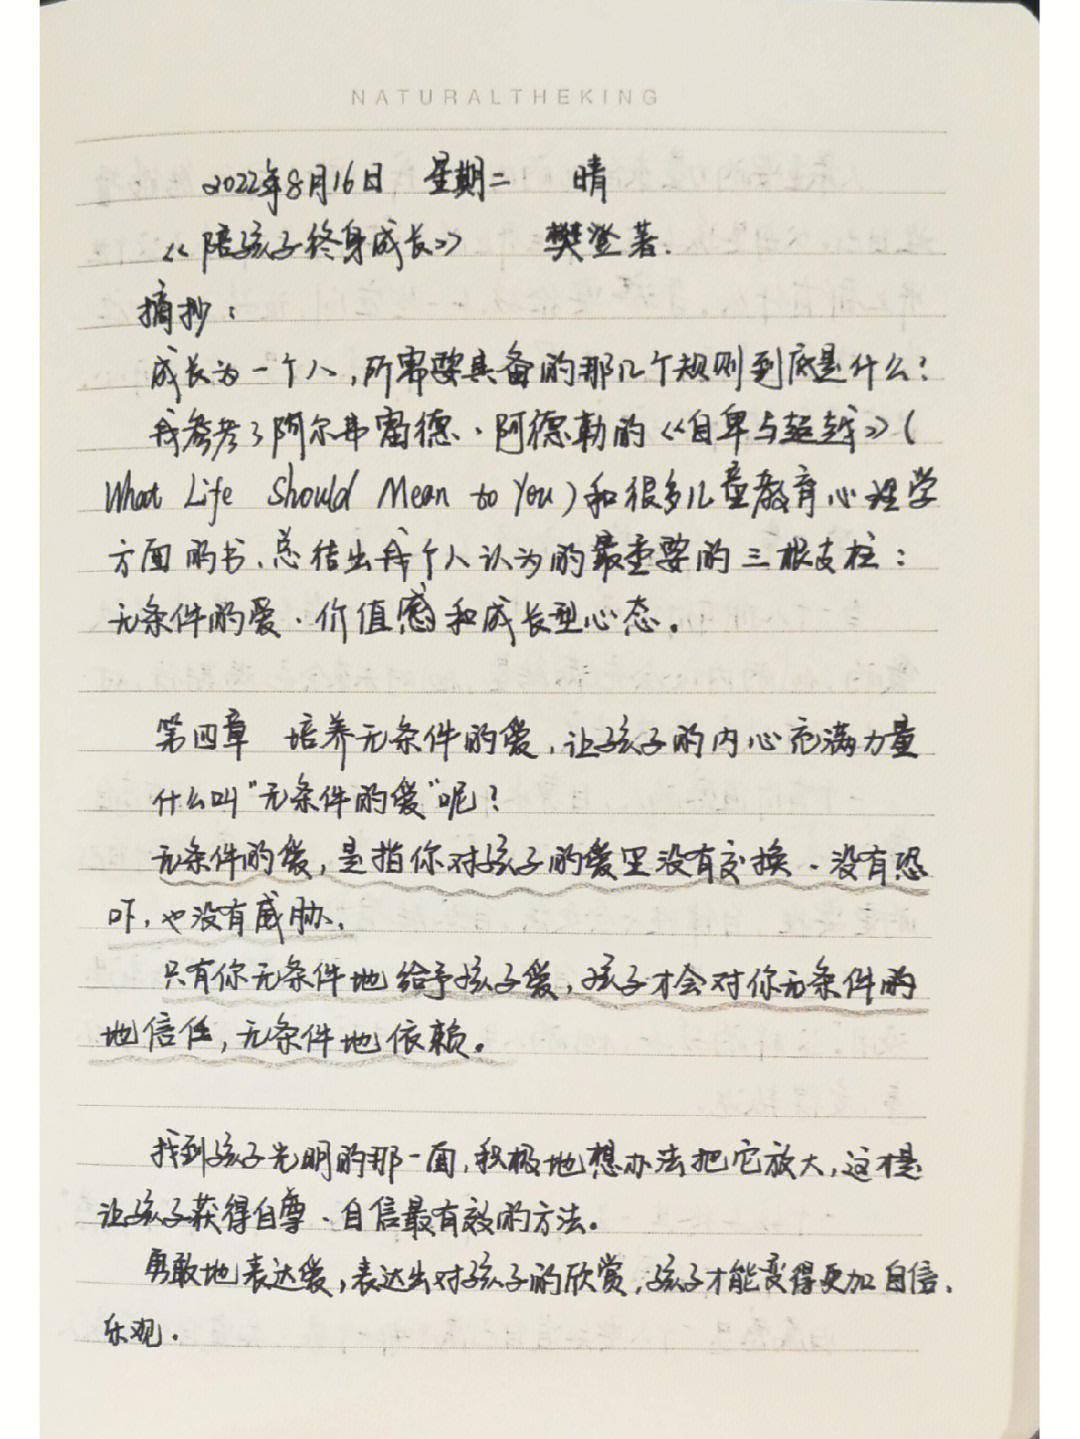 NATURALTHEKING
2022年8月16日 星期二 晴
《陪孩子终身成长》 樊登著.
摘抄：
成长为一个人,所需要具备的那几个规则到底是什么?
我参考了阿尔弗雷德·阿德勒的《自卑与超越》(
What Life Should Mean to You)和很多儿童教育心理学
方面的书、总结出我个人认为的最重要的三根支柱：
无条件的爱、价值感和成长型心态。
第四章 培养无条件的爱,让孩子的内心充满力量
什么叫“无条件的爱”呢?
无条件的爱,是指你对孩子的爱里没有交换、没有恐
吓,也没有威胁、
只有你无条件地给予孩子爱,孩子才会对你无条件的
地信任,无条件地依赖。
找到孩子光明的那一面,积极地想办法把它放大,这才是
让孩子获得自尊、自信最有效的方法。
勇敢地表达爱,表达出对孩子的欣赏,孩子才能变得更加自信、
乐观.